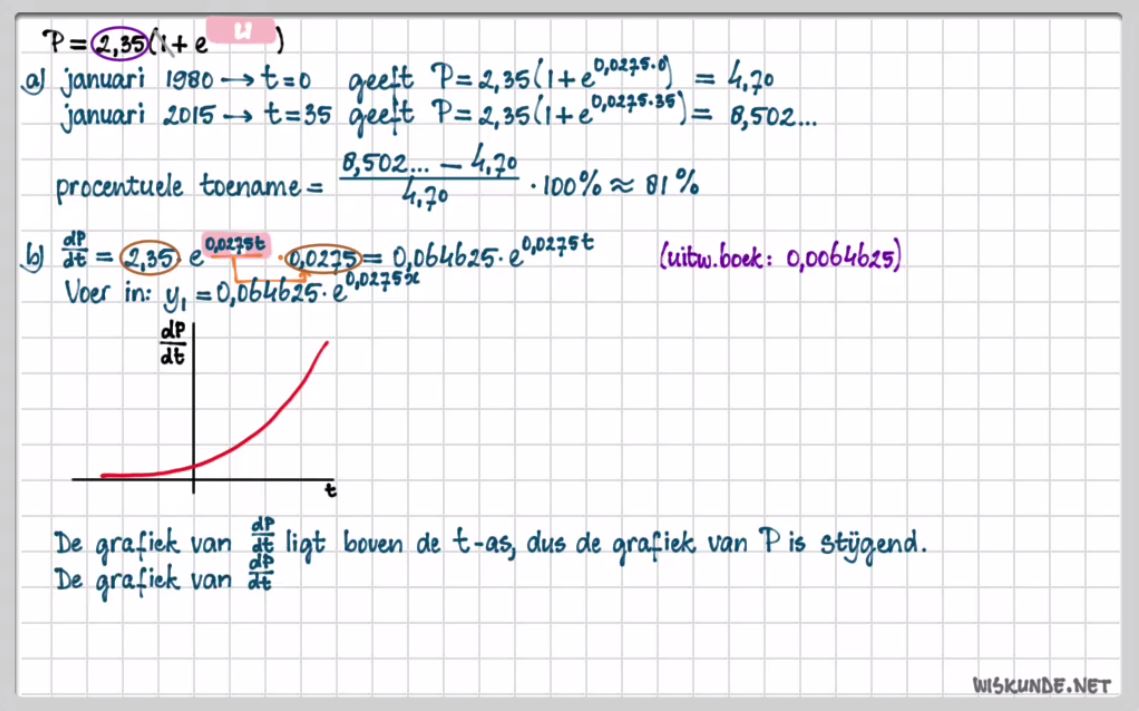 P = 2,35(1 + e^u)
a) januari 1980 → t=0 geeft P = 2,35(1 + e^0,0275·0) = 4,70
januari 2015 → t=35 geeft P = 2,35(1 + e^0,0275·35) = 8,502...
procentuele toename = (8,502... − 4,70)/4,70 · 100% ≈ 81%
b) dP/dt = 2,35 · e^0,0275t · 0,0275 = 0,064625 · e^0,0275t (uitw.boek: 0,0064625)
Voer in: y₁ = 0,064625 · e^0,0275x
dP/dt
t
De grafiek van dP/dt ligt boven de t-as, dus de grafiek van P is stijgend.
De grafiek van dP/dt
WISKUNDE.NET